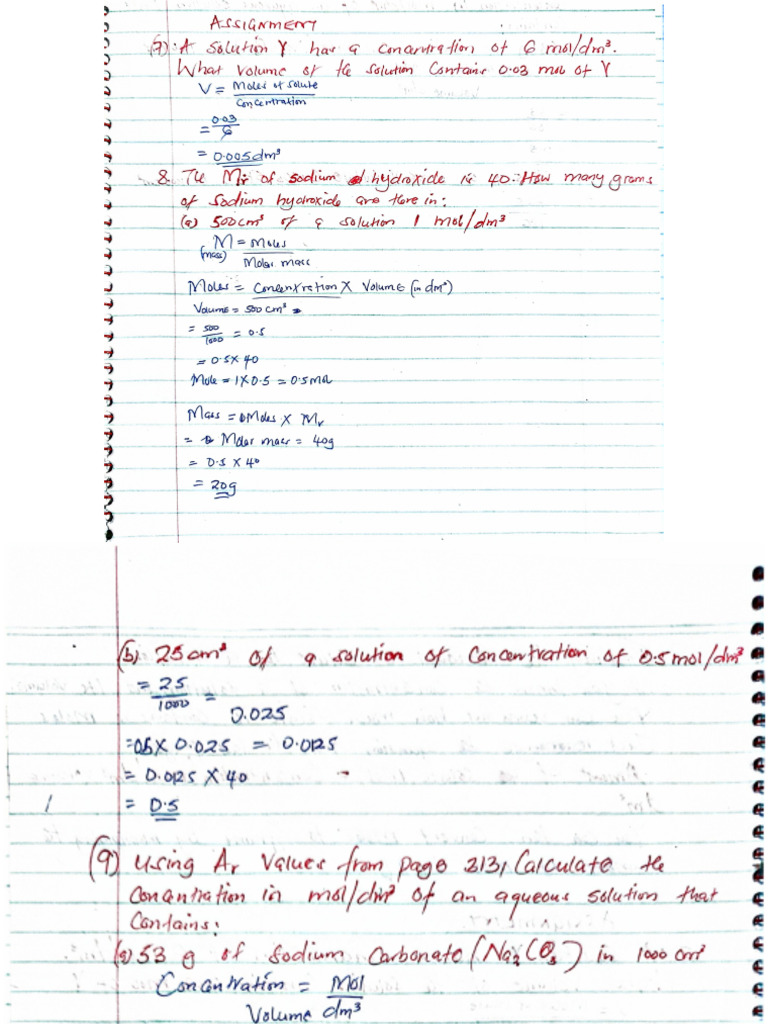 ASSIGNMENT
(7): A Solution Y has a concentration of 6 mol/dm³.
What volume of the solution contains 0.03 mol of Y
V = Moles of solute
Concentration
= 0.03
6
= 0.005dm³
8. The Mr of sodium hydroxide is 40. How many grams
of sodium hydroxide are there in:
(a) 500cm³ of a solution 1 mol/dm³
M = Moles
(mass) Molar mass
Moles = Concentration X Volume (in dm³)
Volume = 500 cm³
= 500
1000 = 0.5
= 0.5 X 40
Mole = 1 X 0.5 = 0.5 mol
Mass = Moles X Mr
= Molar mass = 40g
= 0.5 X 40
= 20g
(b) 25cm³ of a solution of concentration of 0.5 mol/dm³
= 25
1000 =
0.025
=0.5X 0.025 = 0.0125
= 0.0125 X 40
= 0.5
(9) Using Ar values from page 313, Calculate the
concentration in mol/dm³ of an aqueous solution that
contains:
(a) 53 g of sodium carbonate (Na₂CO₃) in 1000 cm³
Concentration = Mol
Volume dm³